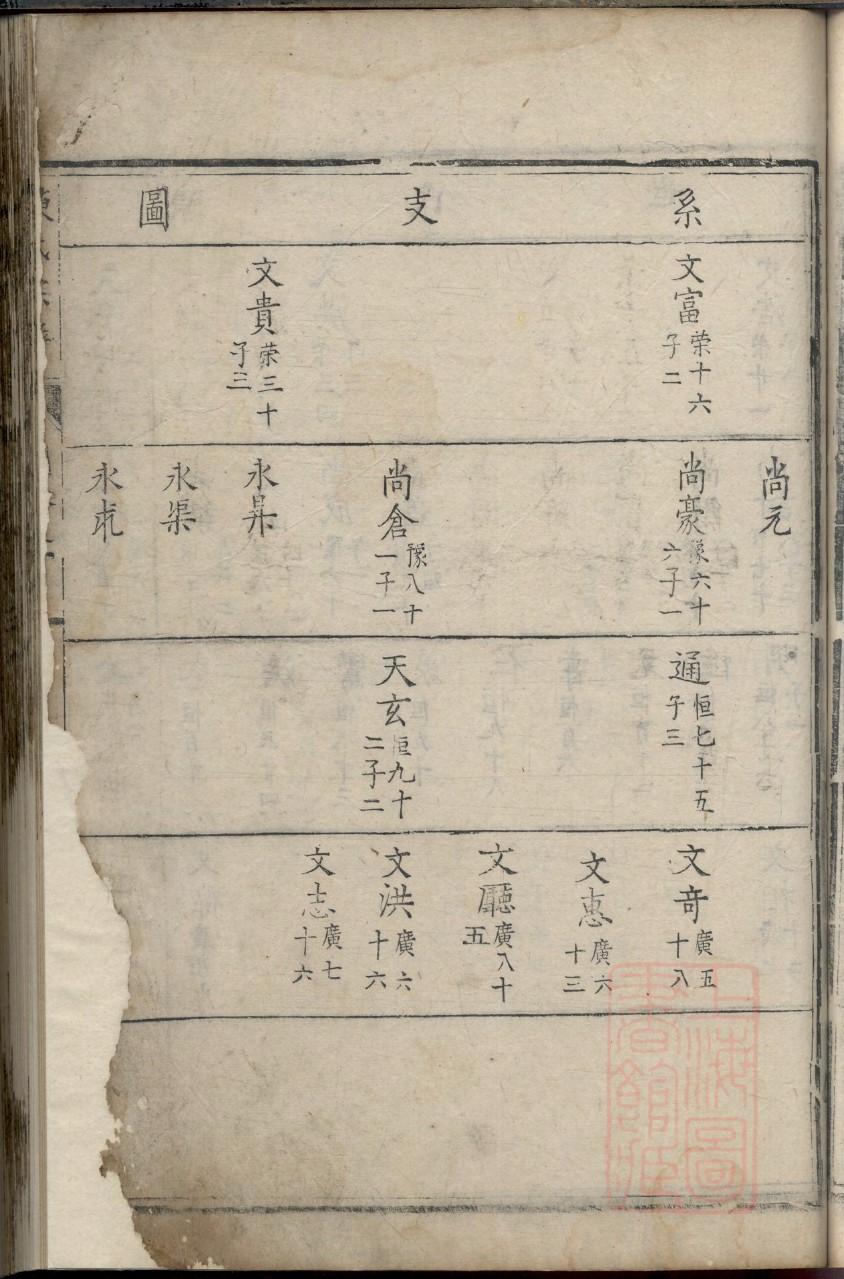 系支圖
文富 荣十六子二
文貴 荣三十子三
尚元
尚豪 豫六十六子一
尚倉 豫八十一子一
永昇
永渠
永
通 恒七十五子三
天玄 恒九十二子二
文竒 廣五十八
文惠 廣六十三
文廳 廣八十五
文洪 廣六十六
文志 廣七十六
上海圖書館藏